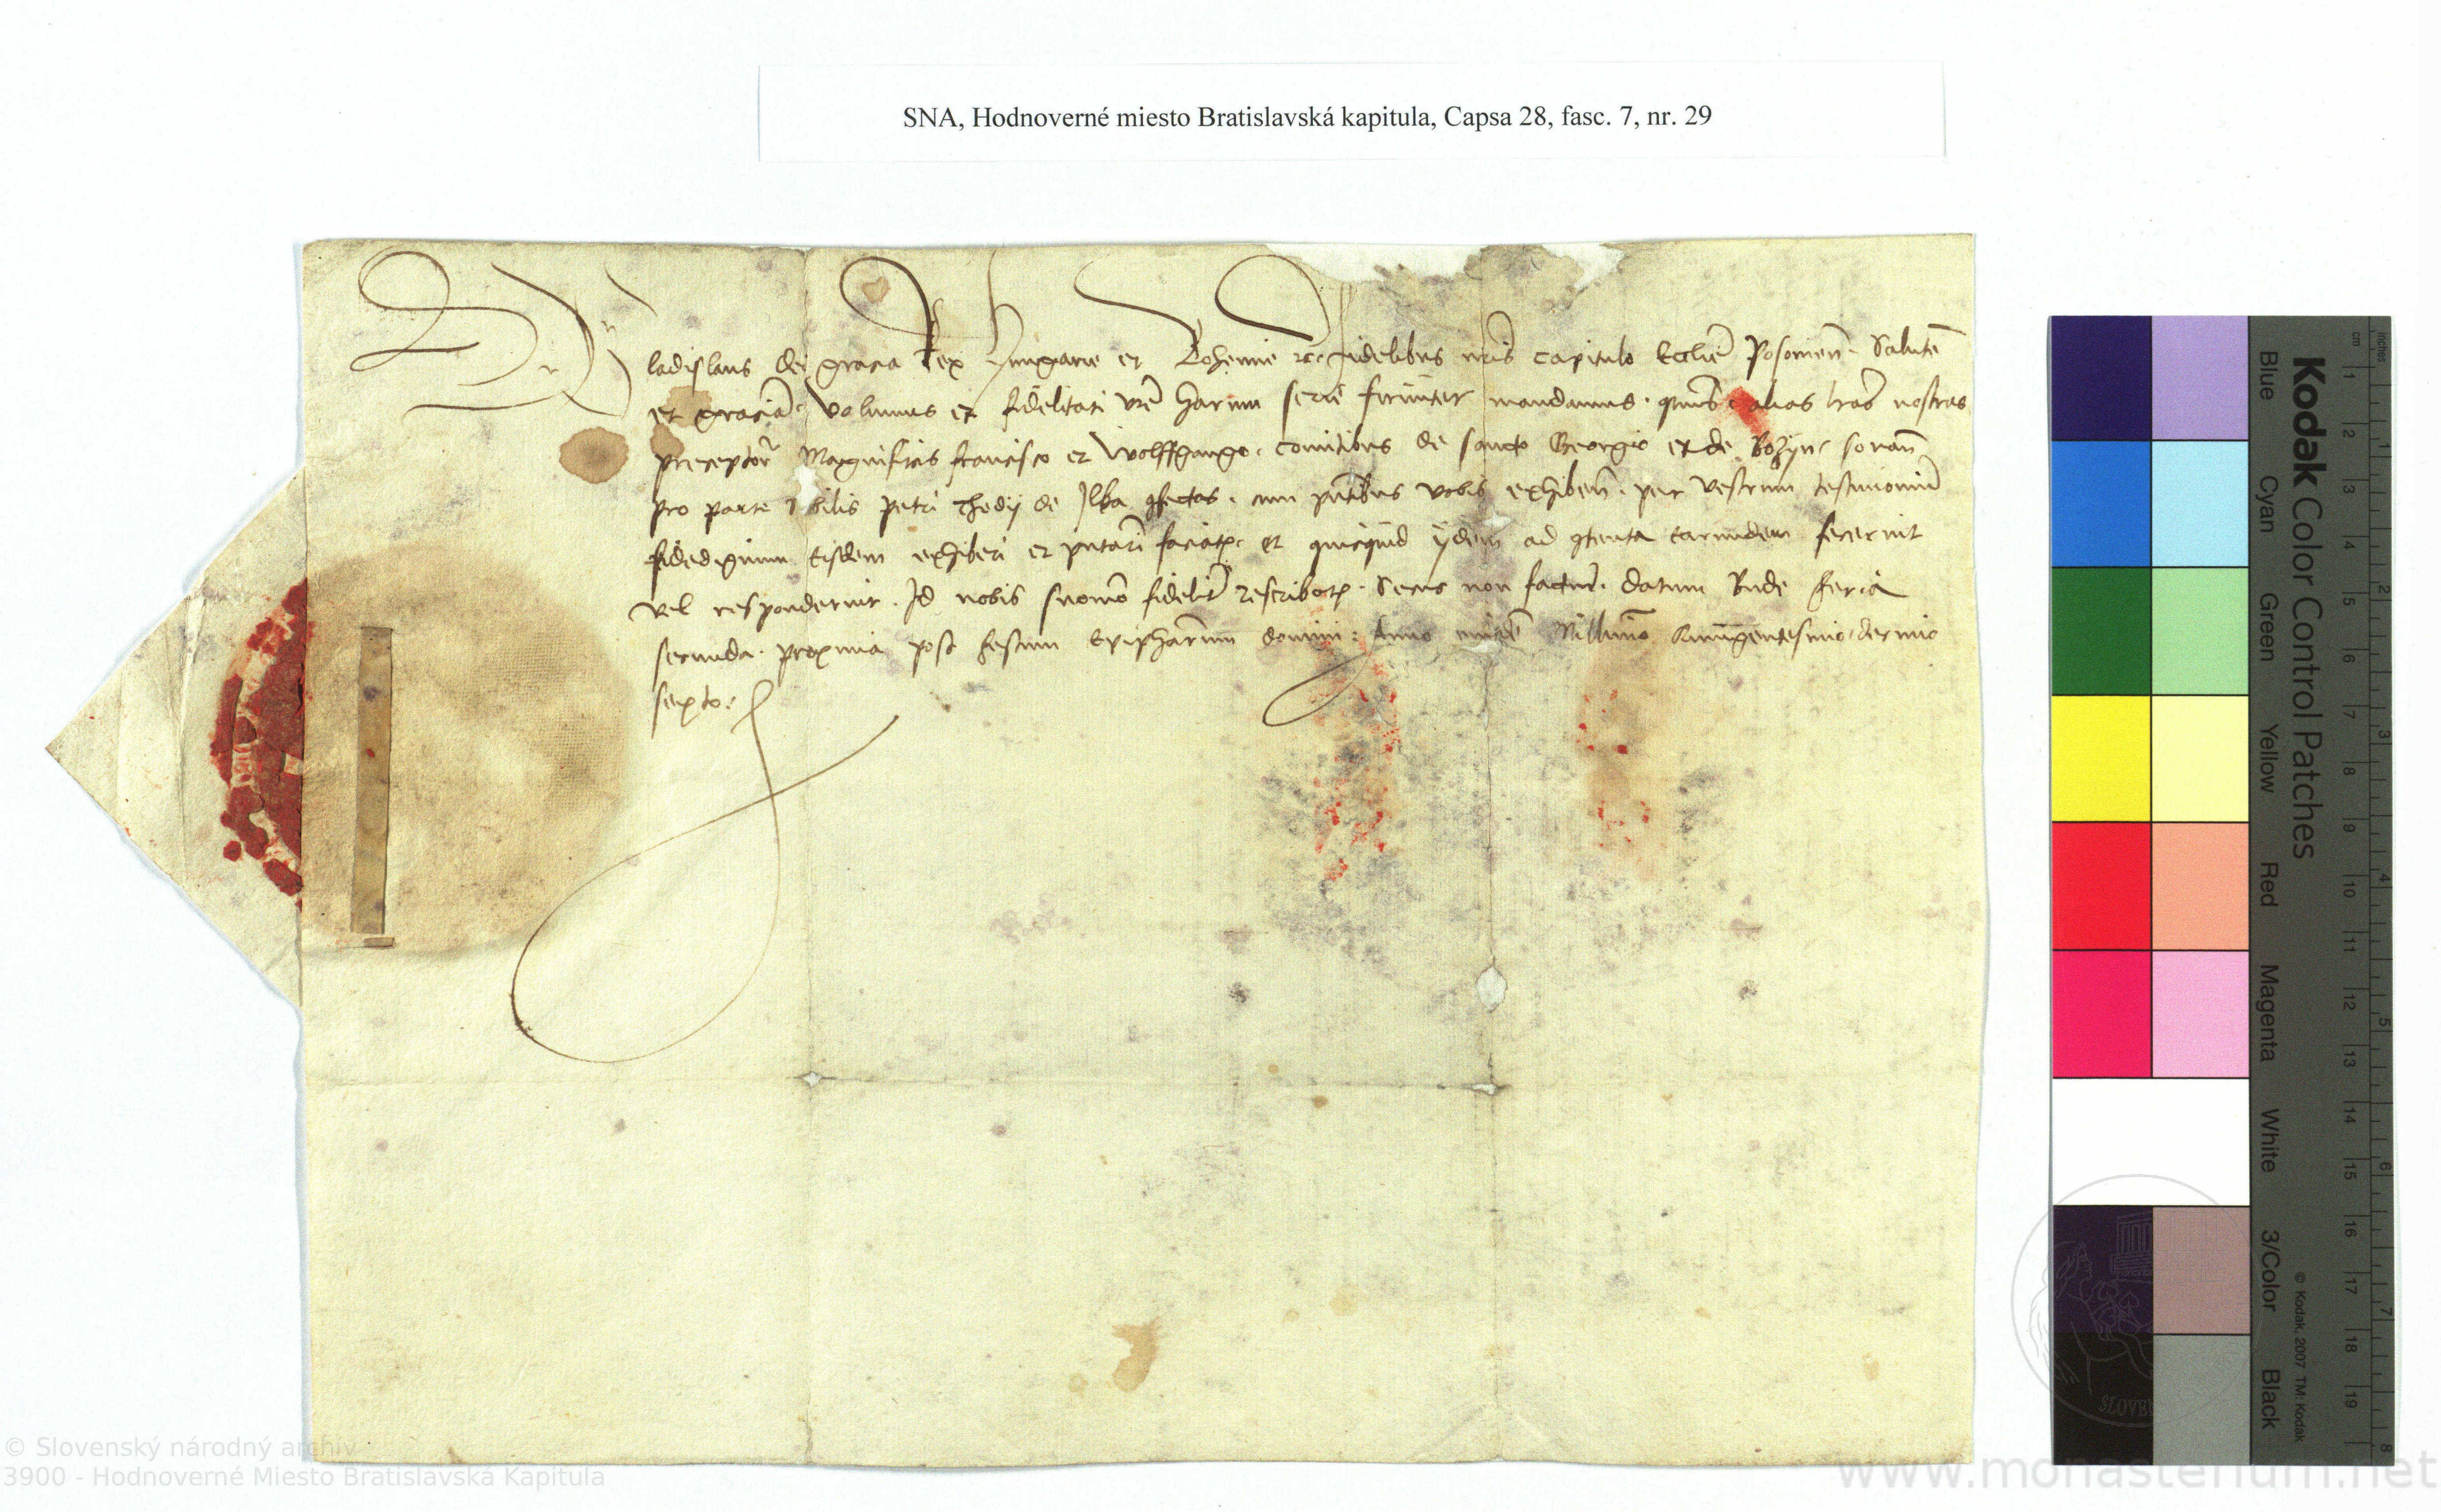 SNA, Hodnoverné miesto Bratislavská kapitula, Capsa 28, fasc. 7, nr. 29
Wladislaus dei gracia Rex Hungarie et Bohemie etc fidelibus nris capitulo Ecclie Posonien Salutem
et graciam volumus et fidelitati vre harum serie firmiter mandamus alias lras nostras
preceptor Magnificis francisco et Wolffgango comitibus de sancto Georgio et de Bozyn
pro parte Nobilis petri Thedy de Ilka cfectas cum pntibus vobis exhiben per vestrum testimonium
fidedignum Eisdem exhiberi et pntari faciatis et quicquid ydem ad contenta earundem fecerint
vel responderint Id nobis suomodo fideliter rescribatis Secus non facturi datum Bude feria
secunda proxima post festum Epiphaniarum domini Anno eiusdem Millimo Quingentesimo decimo
sexto
Kodak Color Control Patches
Blue Cyan Green Yellow Red Magenta White 3/Color Black
© Kodak, 2007 TM: Kodak
cm 1 2 3 4 5 6 7 8 9 10 11 12 13 14 15 16 17 18 19
inches 1 2 3 4 5 6 7 8
© Slovenský národný archív
3900 - Hodnoverné Miesto Bratislavská Kapitula
www.monasterium.net